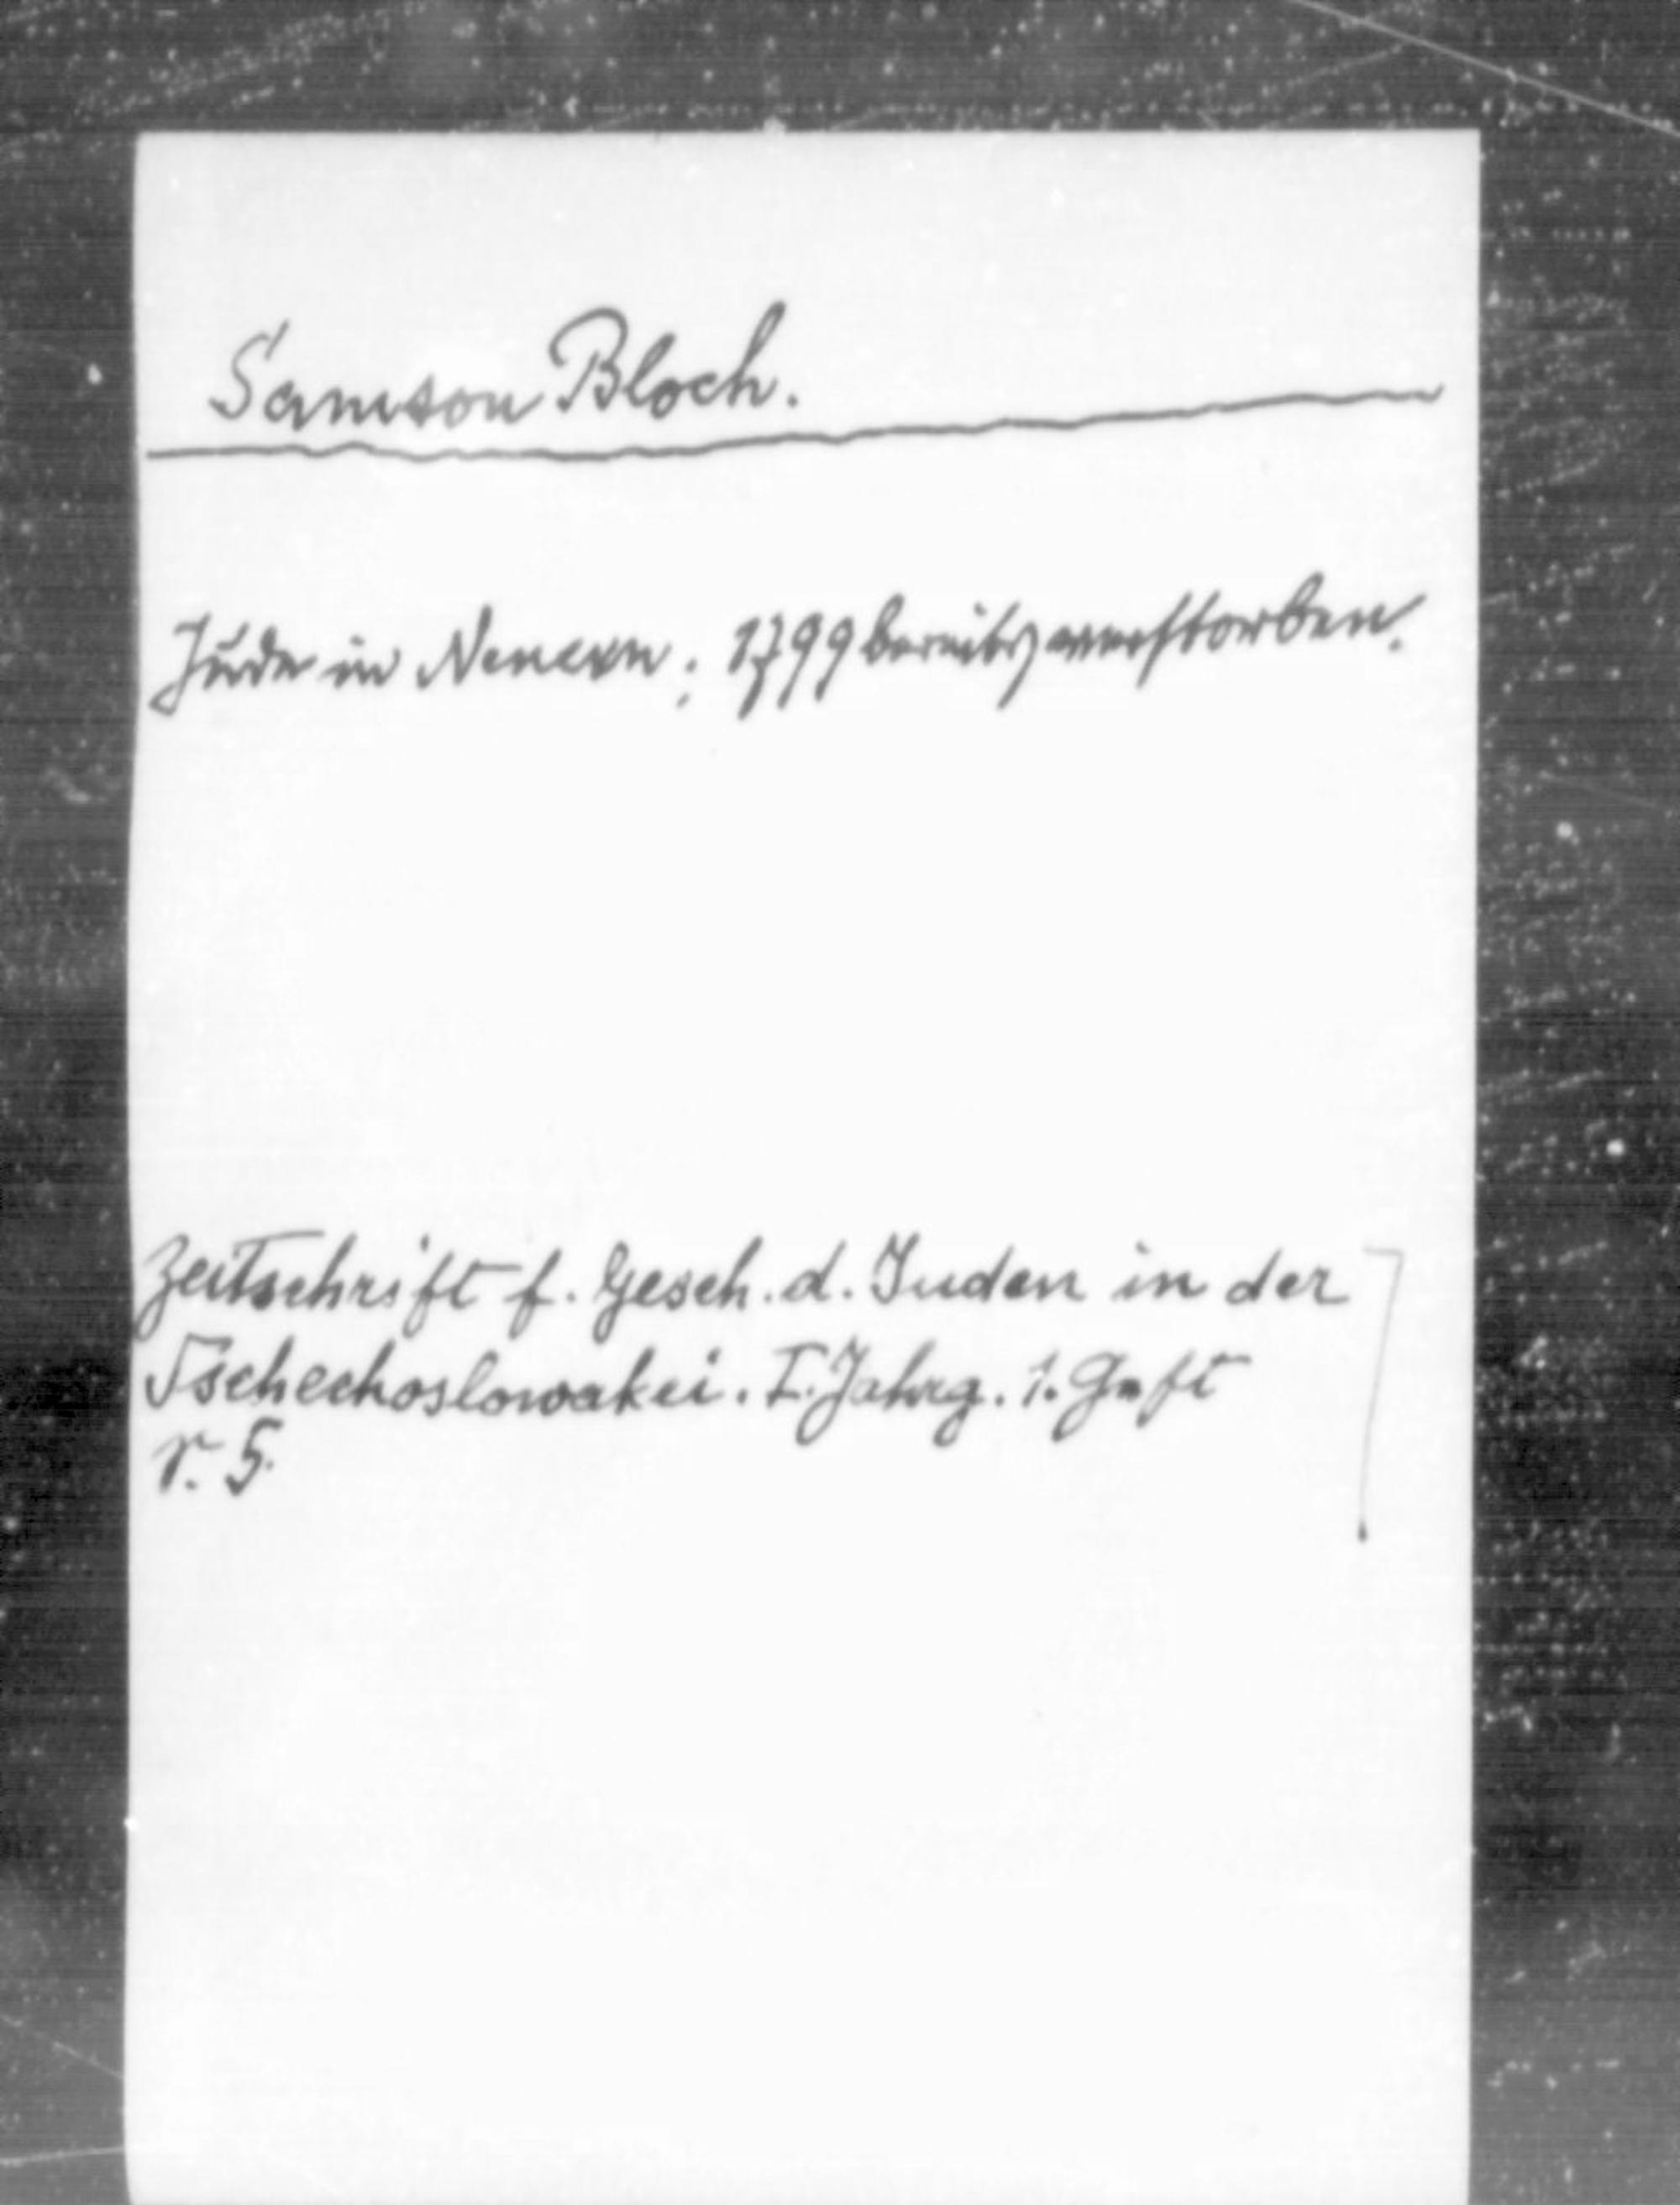 Samson Bloch.
Jude in Neuern; 1799 bereits verstorben.
Zeitschrift f. Gesch. d. Juden in der
Tschechoslowakei. I. Jahrg. 1. Heft
S. 5.